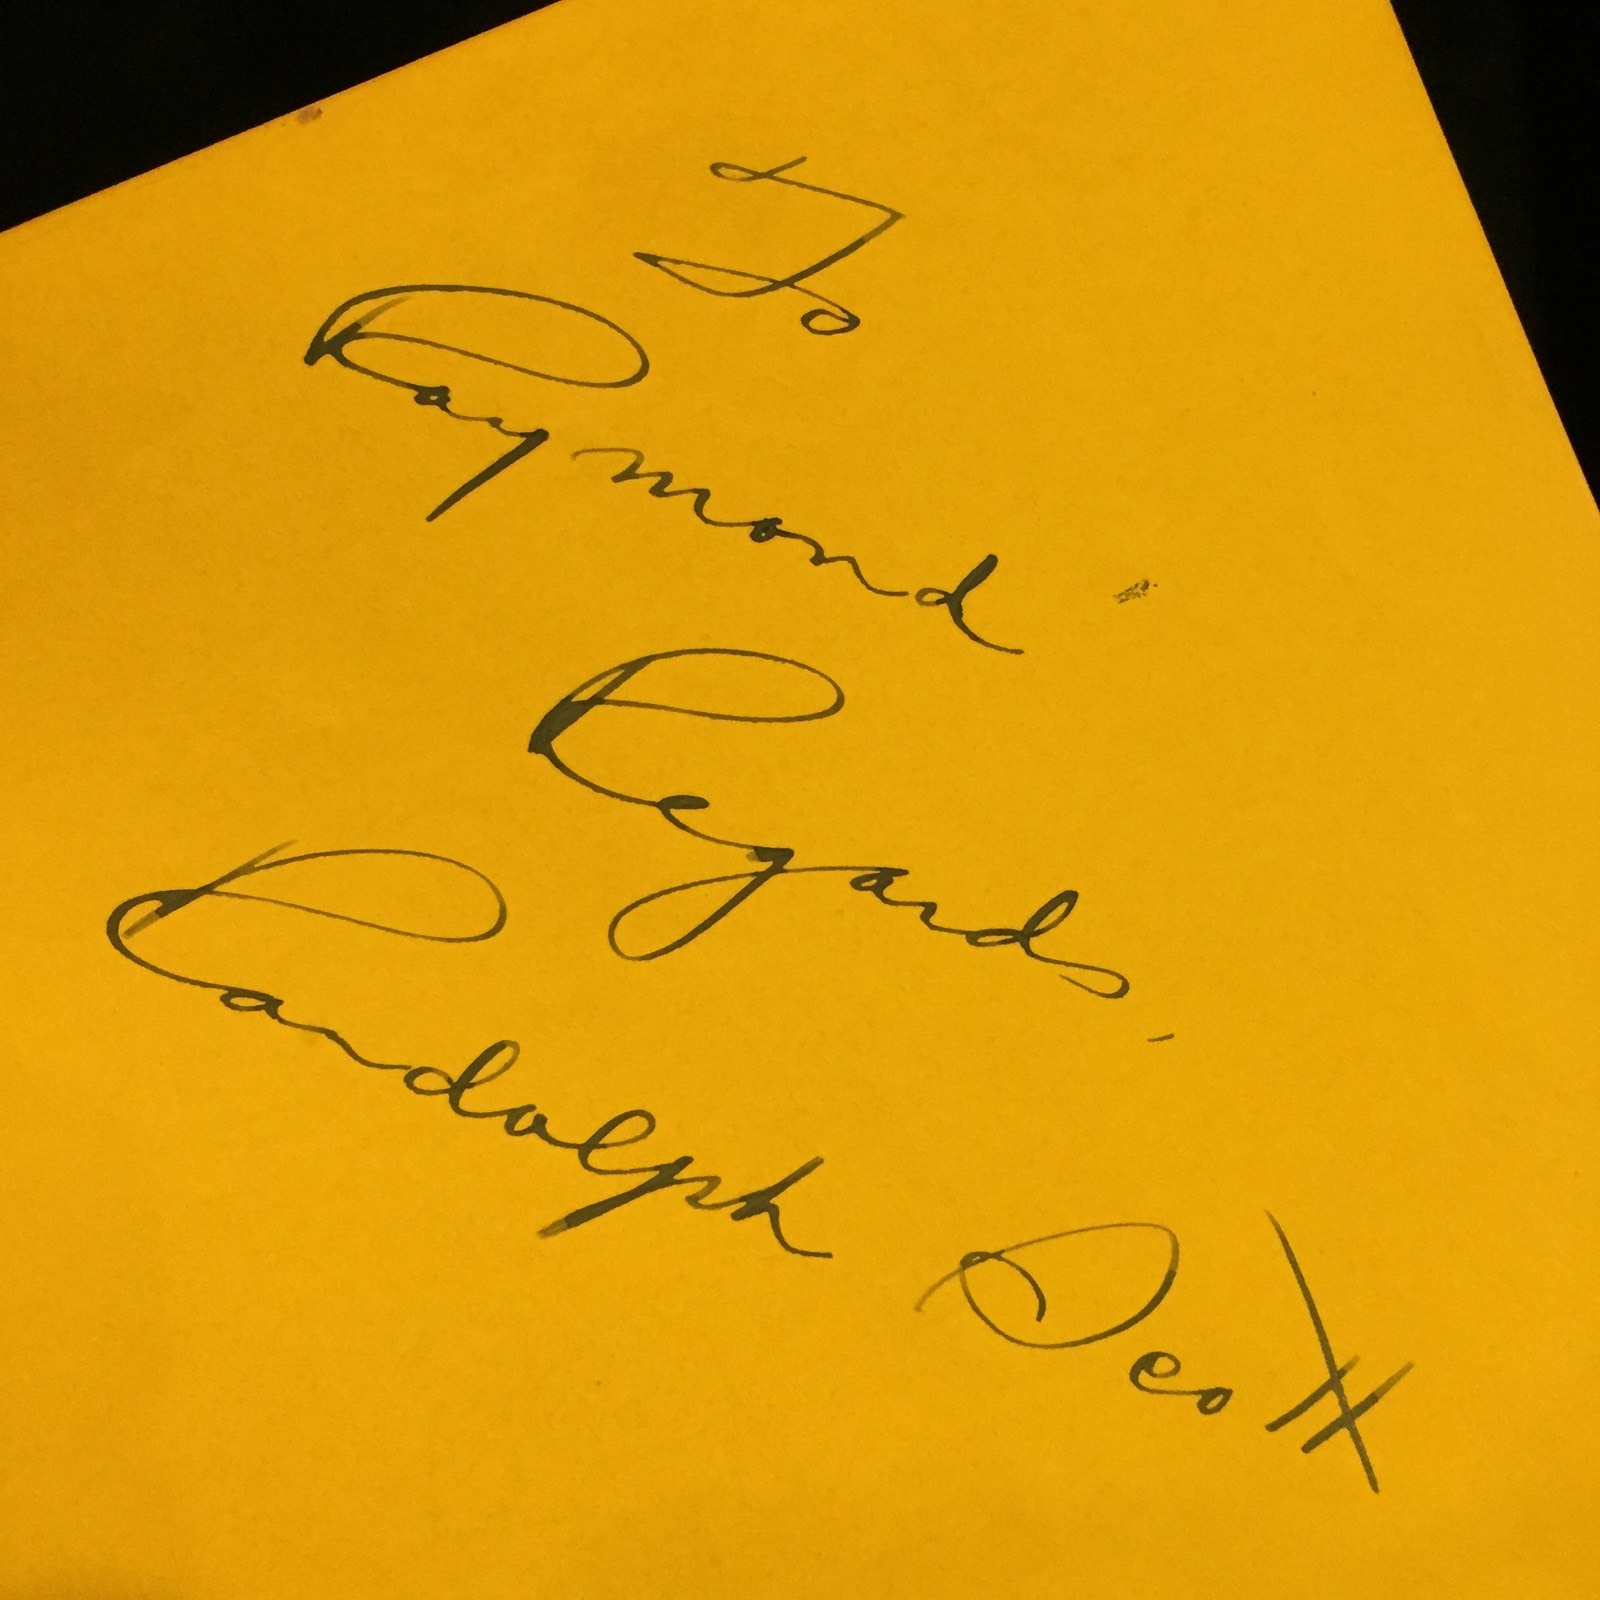 To
Raymond
Regards,
Randolph Scott